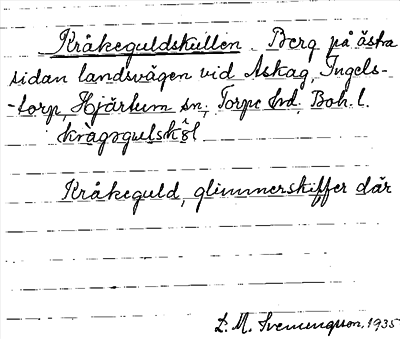 Kråkeguldskullen. Berg på östra
sidan landsvägen vid Askag, Ingels-
-torp, Hjärtum sn, Torpe hd, Boh. l.
kràgəgulskö̂l
Kråkeguld, glimmerskiffer där
L. M. Svenungsson, 1935